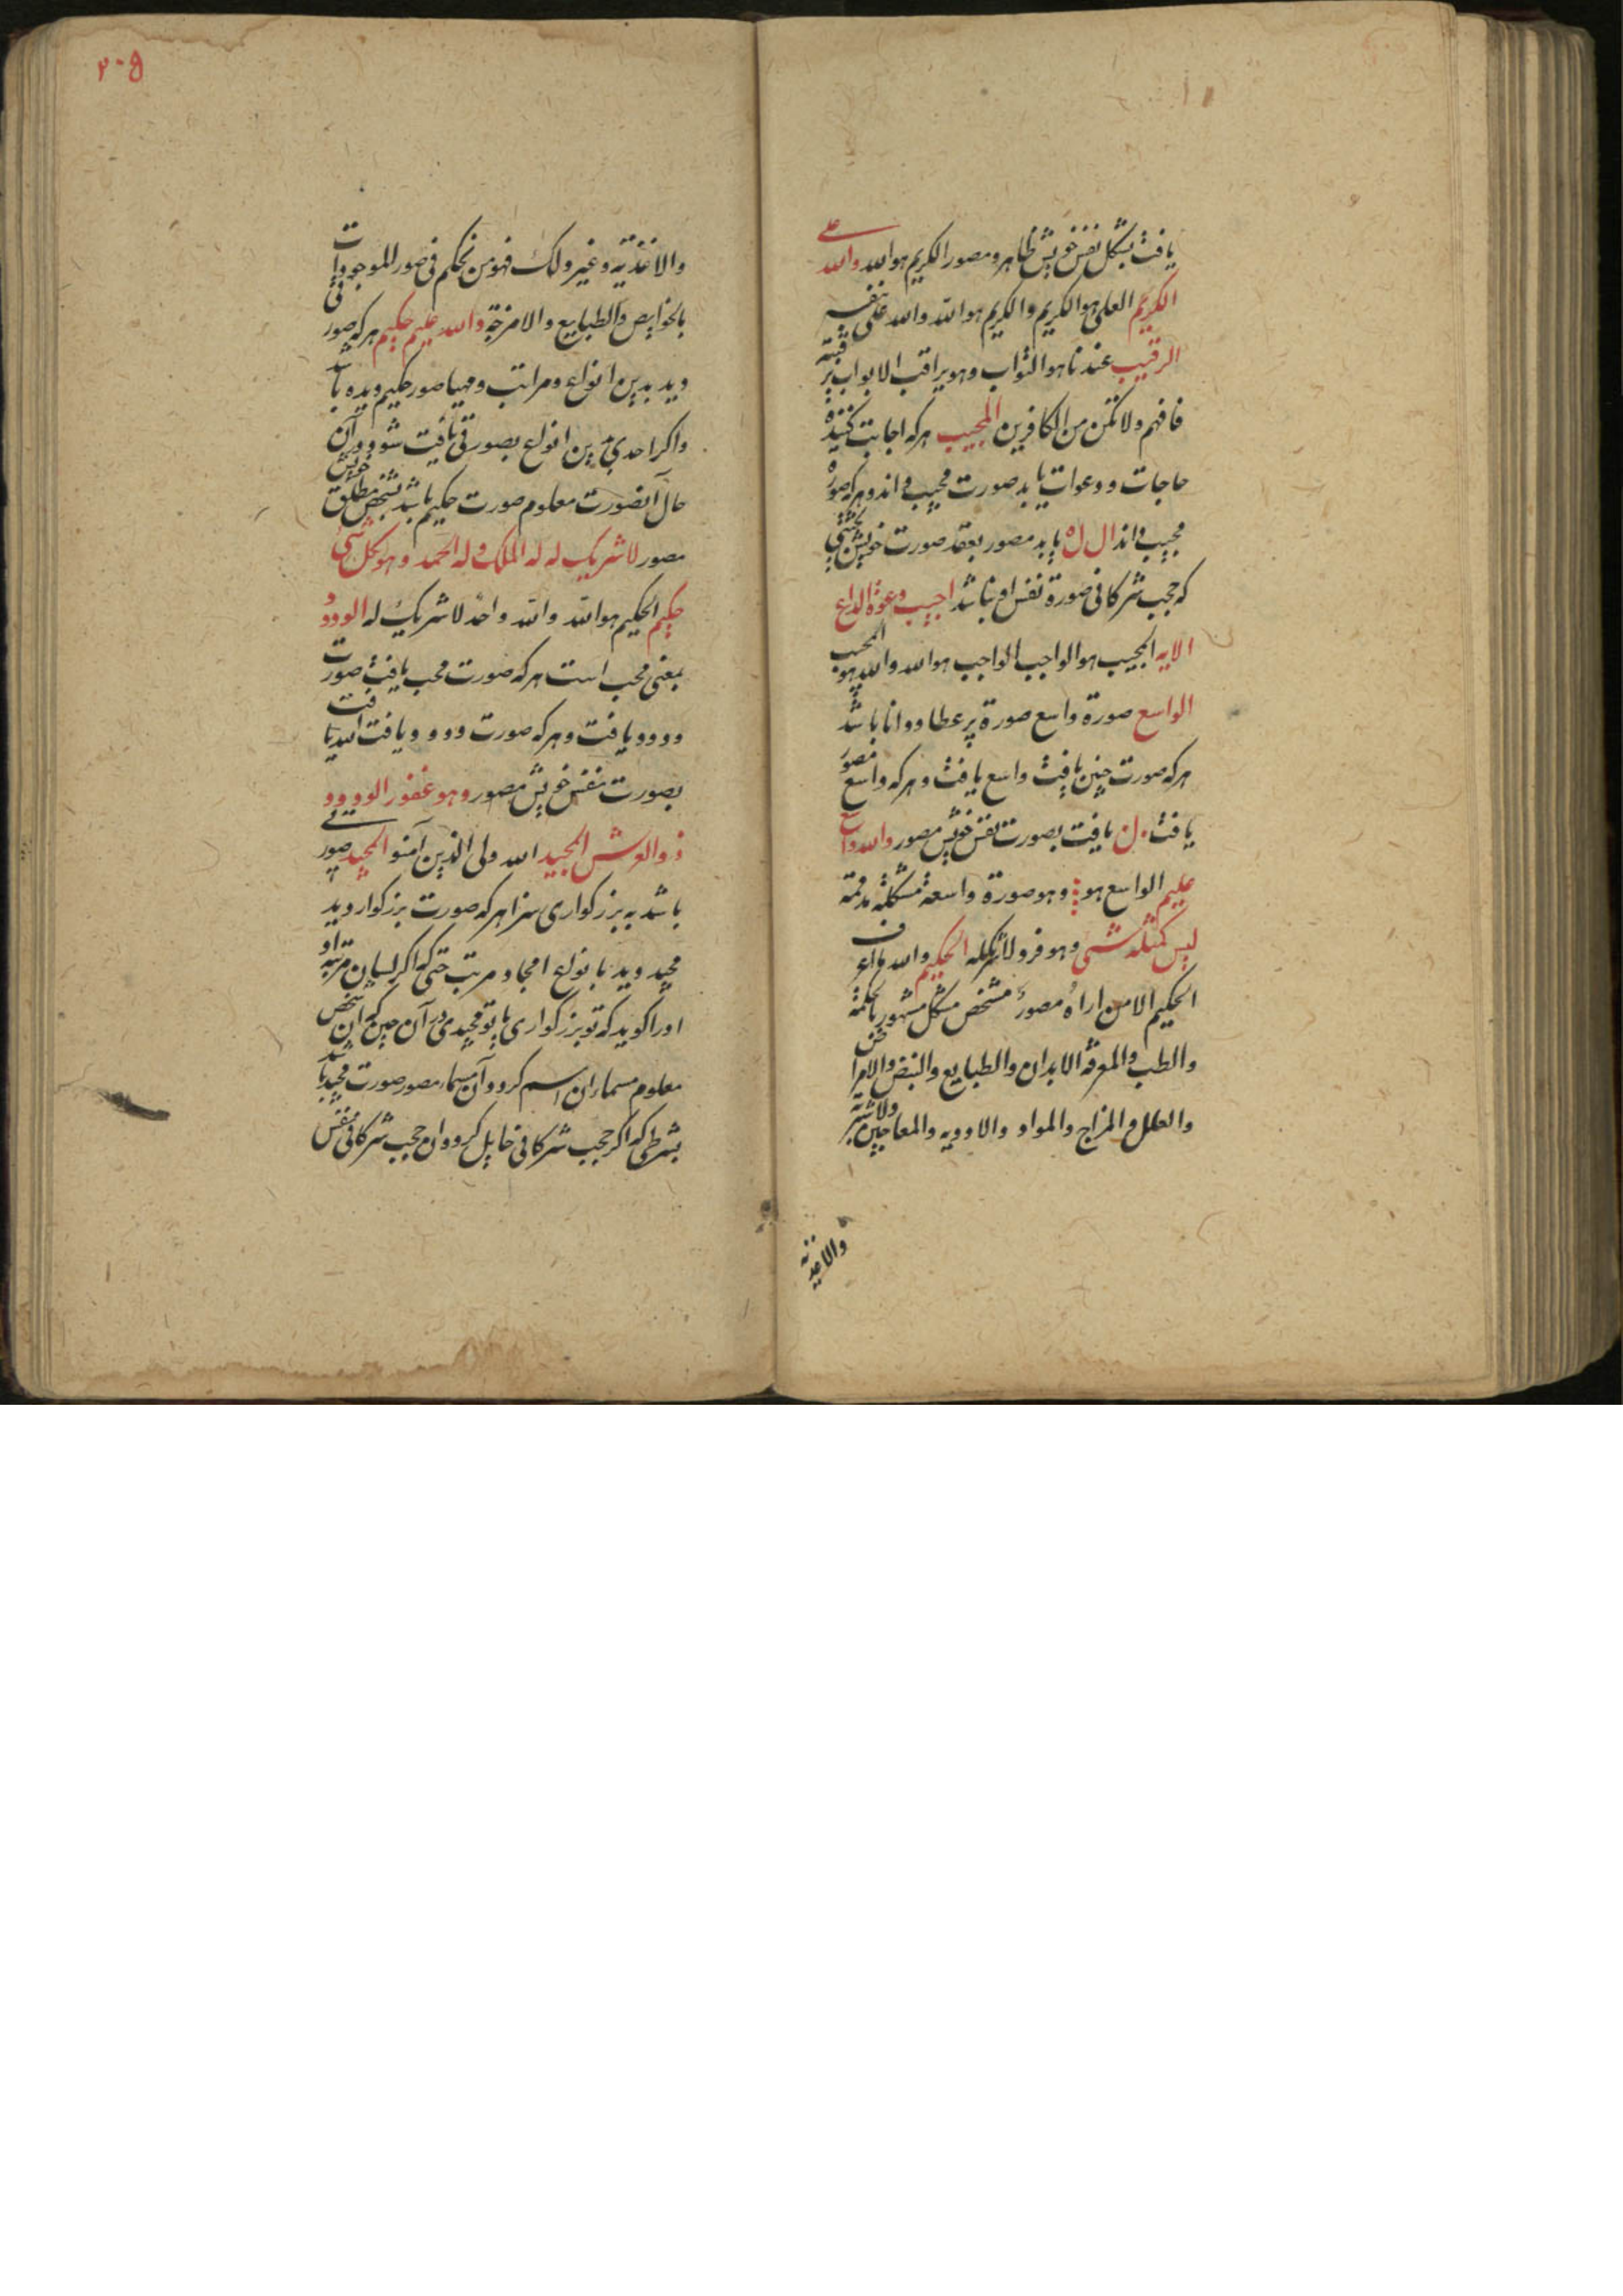 یافت بشکل نفس خویش ظاهر و مصور الکریم هو الله والله علی
الکریم العلی هو الکریم والکریم هو الله والله علی نفسه
الرقیب عندنا هو الثواب وهو یراقب الابواب
فافهم ولا تکن من الکافرین المجیب هر که اجابت کننده
حاجات و دعوات یابد صورت مجیب داند و هر که صورة
مجیب داند ال له یابد مصور بعقد صورت خویش
که حجب شرکا فی صورة نفس او نباشد اجیب دعوة الداع
الایه المجیب هو الواجب الواجب هو الله والله هو المجیب
الواسع صورة واسع صورة پر عطا و دانا باشد
هر که صورت چنین یافت واسع یافت و هر که واسع مصور
یافت ل یافت بصورت نفس خویش مصور والله واسع
علیم الواسع هو وهو صورة واسعة مشکلة
لیس کمثله شی وهو فرد لا شکله الحکیم والله ما اعرف
الحکیم الا من اراه مصور مشخص مشکل مشهور بالحکمة
والطب والمعرفة الابدان والطبایع والنبض والامراض
والعلل والمزاج والمواد والادویه والمعاجین والاشربة
۲۰۵
والاغذیة وغیر ذلک فهو من تحکم فی صور الموجودات
بالخوایص والطبایع والامزجة والله علیم حکیم هر که صور
دید بدین انواع و مراتب و مهیا صور حکیم دیده باشد
واکر احدی بدین انواع بصورتی یافت شود در آن
حال آنصورت معلوم صورت حکیم باشد بشخص مطلق خویش
مصور لا شریک له له الملک و له الحمد وهو بکل شی
حکیم الحکیم هو الله والله واحد لا شریک له الودود
بمعنی محب است هر که صورت محب یافت صورت
ودود یافت و هر که صورت ودود یافت الله یافت
بصورت نفس خویش مصور وهو غفور الودود
ذو العرش المجید الله ولی الذین آمنوا المجید صور
باشد به بزرکواری سزا هر که صورت بزرکوار دید
مجید دید بانواع امجاد مرتب حتی که اکر لسان مرتبه او
اورا کوید که تو بزرکواری یا تو مجیدی در آن حین که آن شخص
معلوم مسما بدان اسم کردد آن مسما مصور صورت مجید باشد
بشرطی که اکر حجب شرکا فی خایل کردد و ان حجب شرکا فی نفس